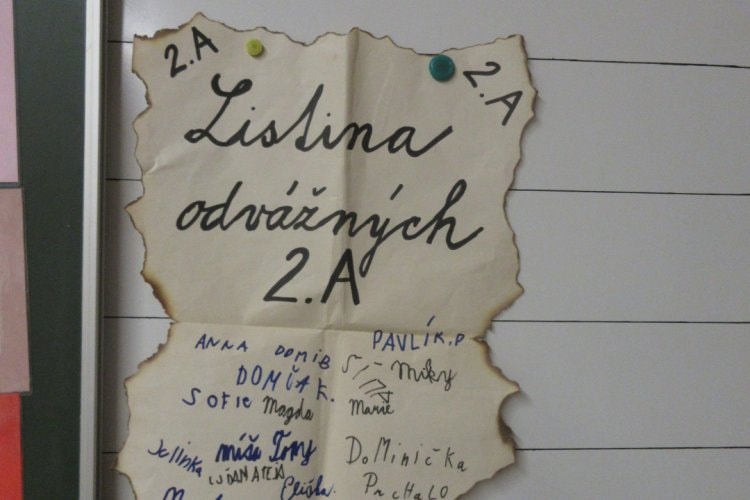 2.A 2.A
Listina
odvážných
2.A
ANNA DOMIB PAVLÍK.P
DOMČA K. Miky
SOFIE Magda Marie
Julinka míša Tomy DoMiNička
Eliška PrCHALO